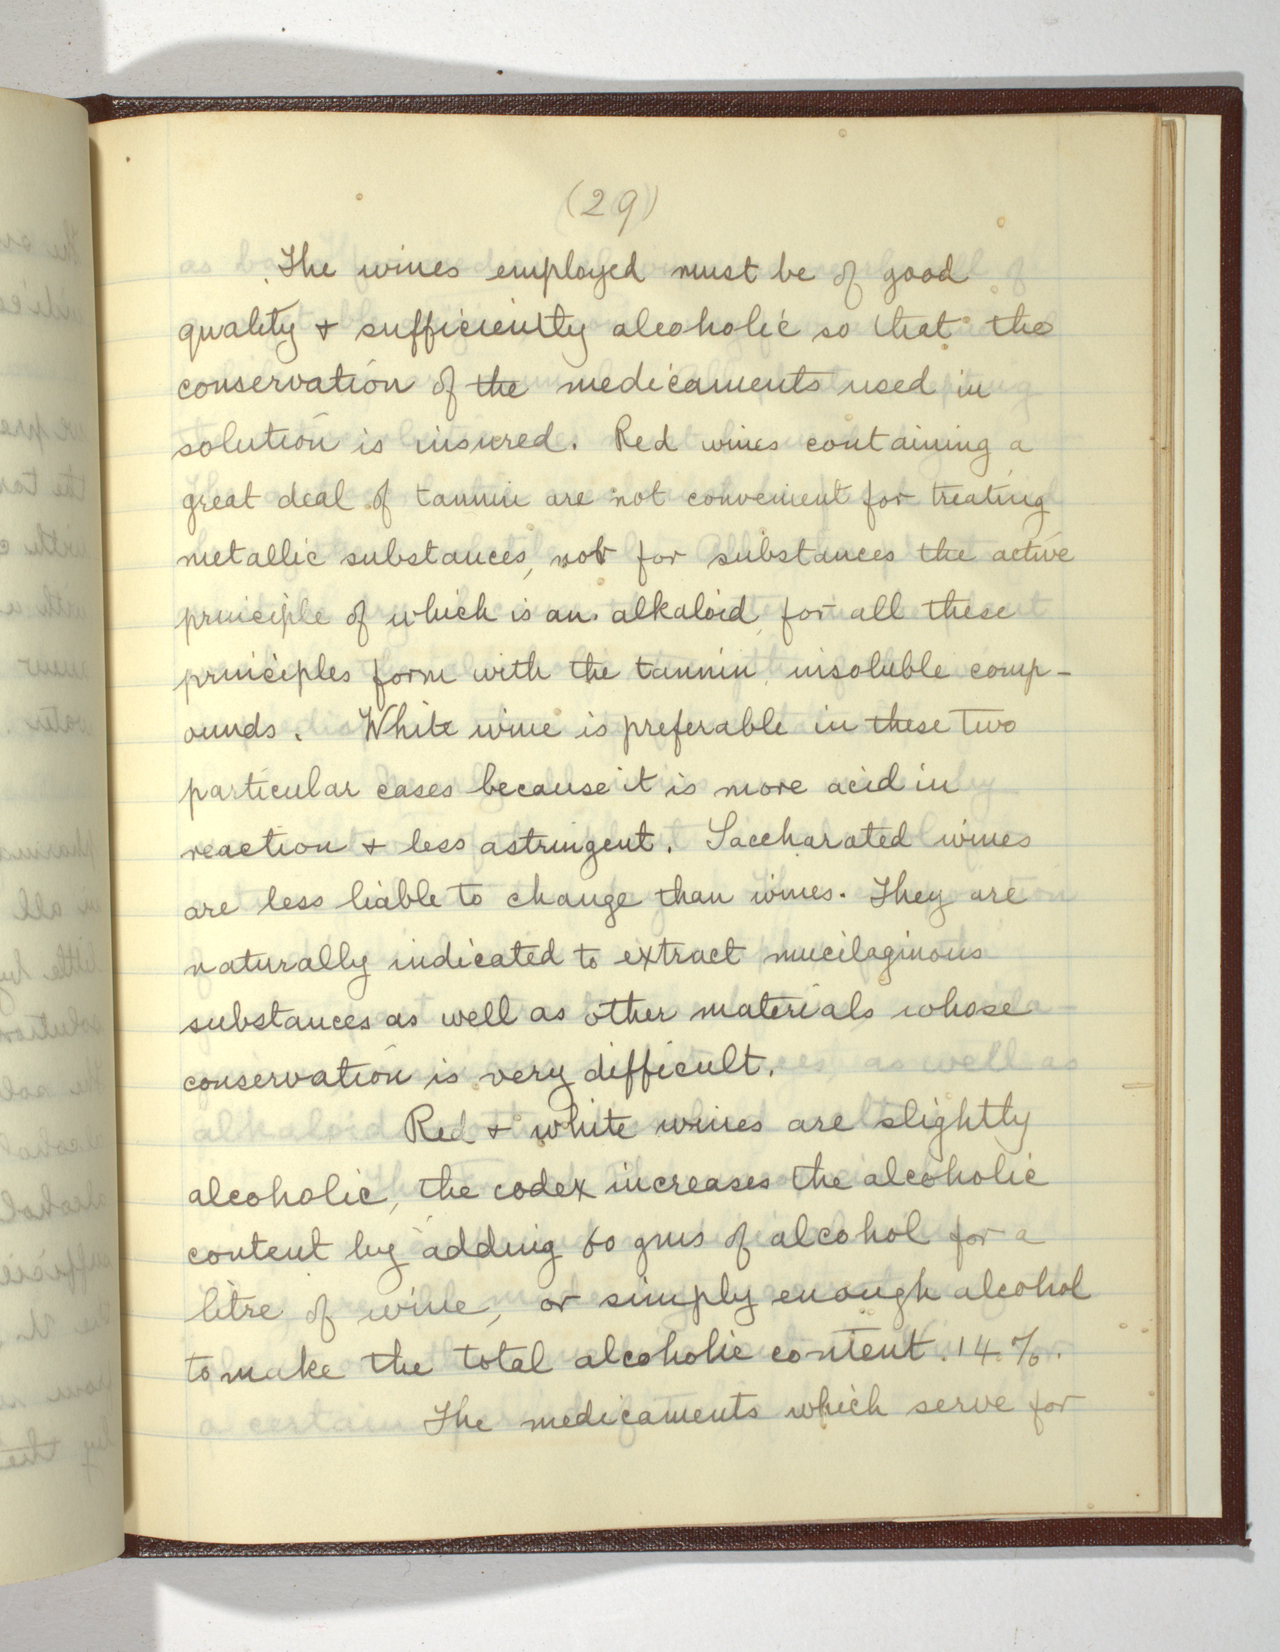 (29)
The wines employed must be of good
quality & sufficiently alcoholic so that the
conservation of the medicaments used in
solution is insured. Red wines containing a
great deal of tannin are not convenient for treating
metallic substances, not for substances the active
principle of which is an alkaloid, for all these
principles form with the tannin, insoluble comp-
ounds. White wine is preferable in these two
particular cases because it is more acid in
reaction & less astringent. Saccharated wines
are less liable to change than wines. They are
naturally indicated to extract mucilaginous
substances as well as other materials whose
conservation is very difficult.
Red & white wines are slightly
alcoholic, the codex increases the alcoholic
content by adding 60 gms of alcohol for a
litre of wine, or simply enough alcohol
to make the total alcoholic content 14%.
The medicaments which serve for